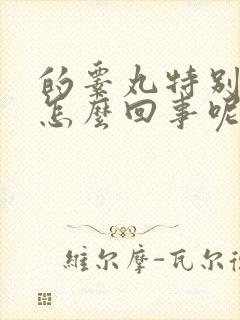 的睾丸特别
怎麼回事呢
維尔摩-瓦尔